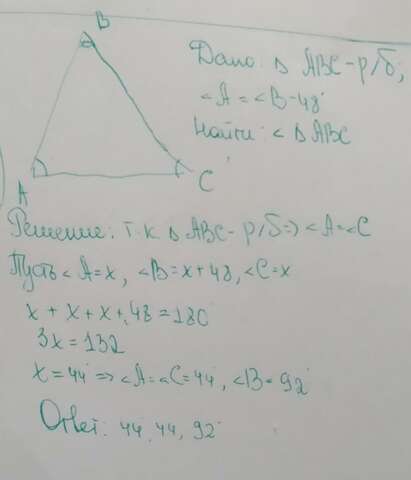 B
Дано: Δ ABC - р/б;
<A = <B - 48°
Найти: < Δ ABC
A
C
Решение: т.к. Δ ABC - р/б => <A = <C
Пусть <A = x, <B = x + 48, <C = x
x + x + x + 48 = 180
3x = 132
x = 44 => <A = <C = 44, <B = 92°
Ответ: 44, 44, 92°